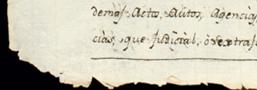 demos Actos, Autos, Agencias
cias, que Judicial, ò extraj